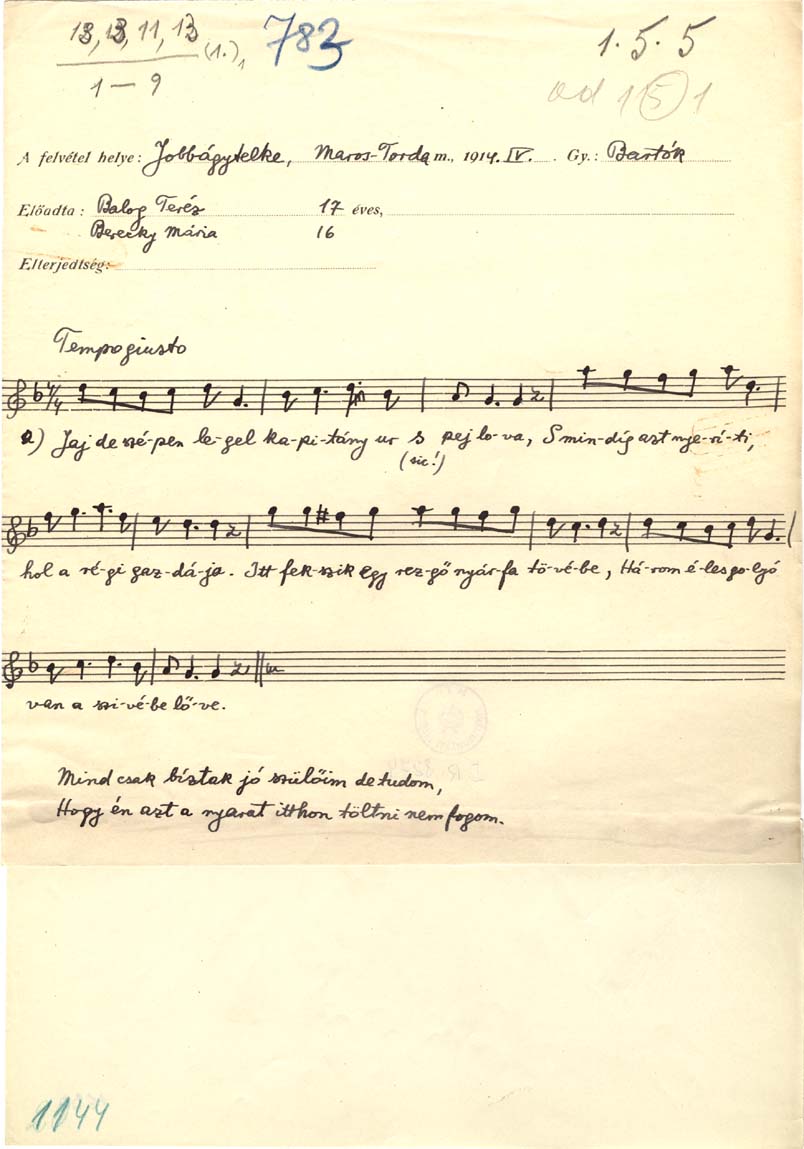 13, 13, 11, 13 (1.), 783 1. 5. 5
1 — 9 od 1 5 1
A felvétel helye: Jobbágytelke, Maros-Torda m., 1914. IV. Gy.: Bartók
Előadta: Balog Teréz 17 éves,
Berecky Mária 16
Elterjedtség:
Tempo giusto
a) Jaj de szé-pen le-gel ka-pi-tány ur s pej lo-va, S min-díg azt nye-rí-ti,
(sic!)
hol a ré-gi gaz-dá-ja. Itt fek-szik egy rez-gő nyár-fa tö-vé-be, Há-rom é-les go-lyó
van a szi-vé-be lő-ve.
Mind csak bíztak jó szülőim de tudom,
Hogy én azt a nyarat itthon töltni nem fogom.
1144